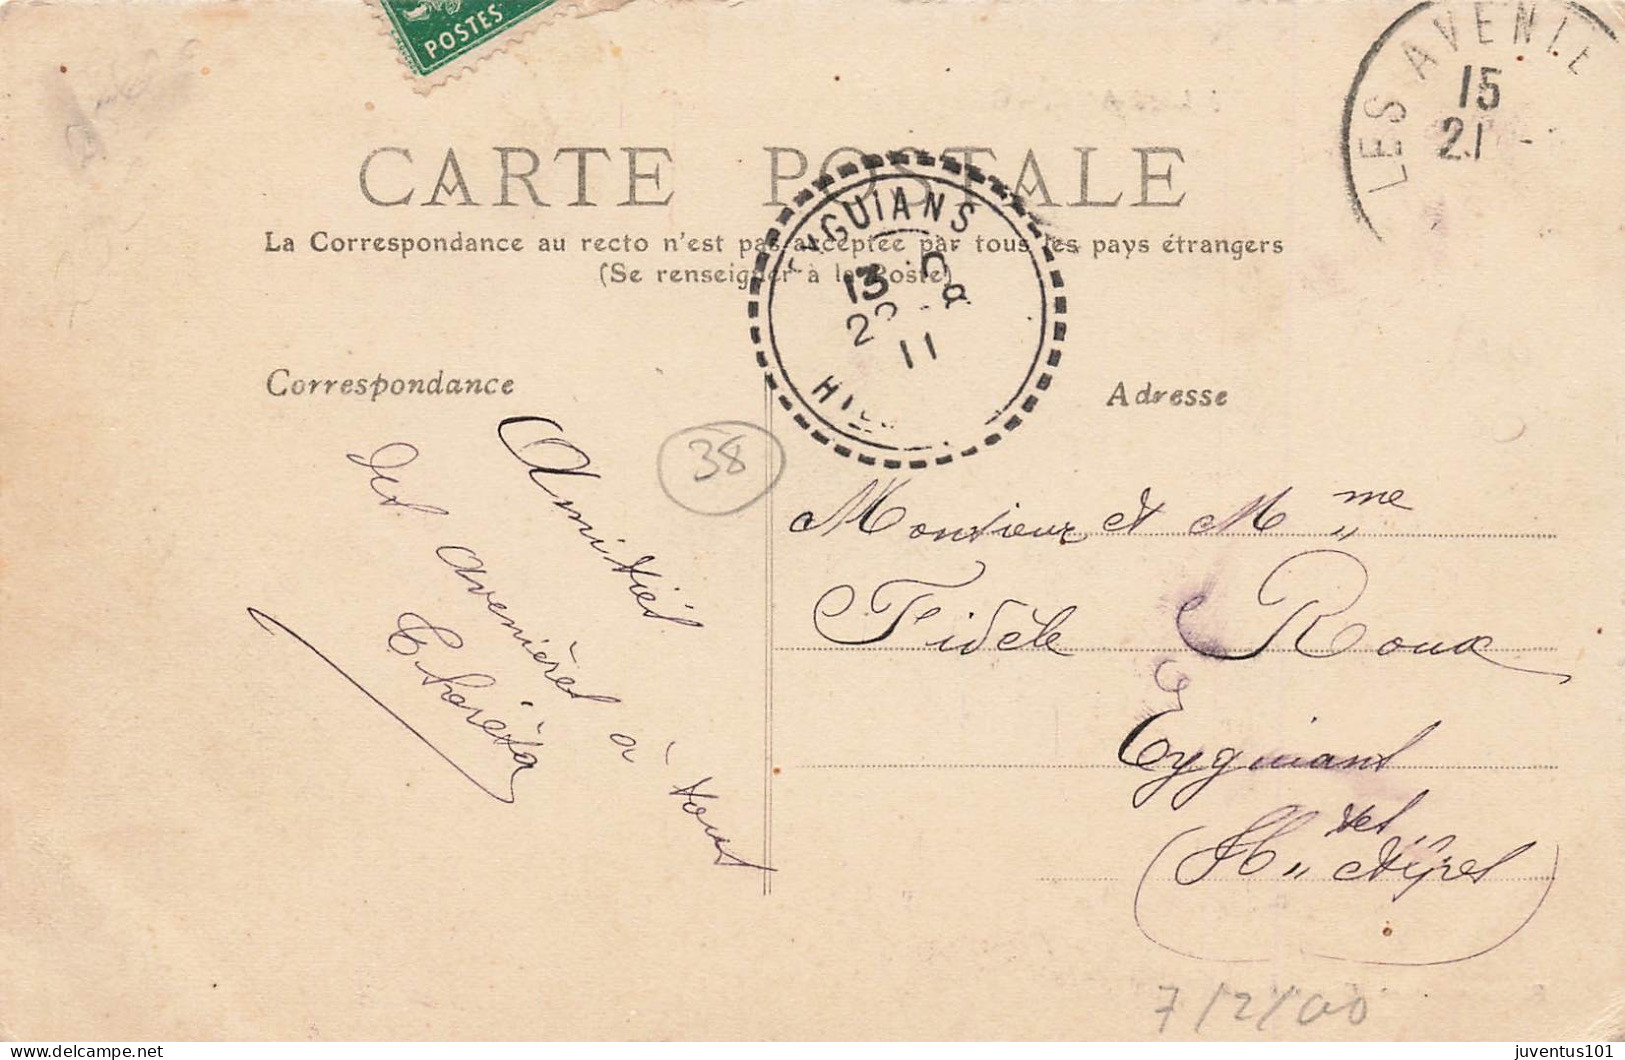 POSTES
LES AVENIE
15
21 -
CARTE POSTALE
La Correspondance au recto n'est pas acceptée par tous les pays étrangers
(Se renseigner à la Poste)
EYGUIANS
13
11
Correspondance
Adresse
38
Amitiés
des avenières à tous
Monsieur et Mme
Fidèle Roux
Eyguians
(Htes Alpes)
7/2/00
juventus101